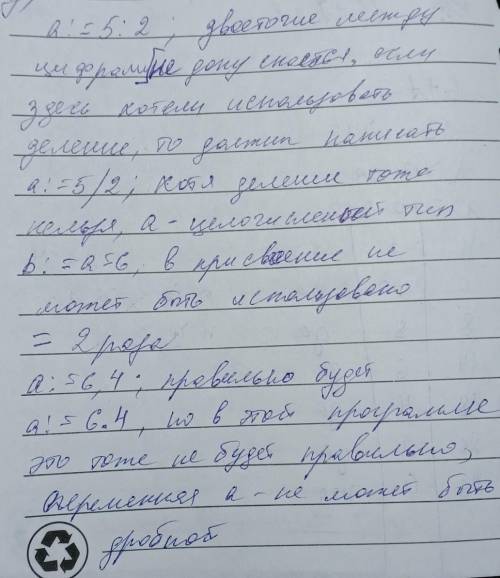 a:=5:2; двоеточие между
цифрами не допускается, если
здесь хотели использовать
деление, то должны написать
a:=5/2; хотя деление тоже
нельзя, a - целочисленный тип
b:=a=6, в присвоение не
может быть использовано
= 2 раза
a:=6,4; правильно будет
a:=6.4, но в этой программе
это тоже не будет правильно,
переменная a - не может быть
дробной